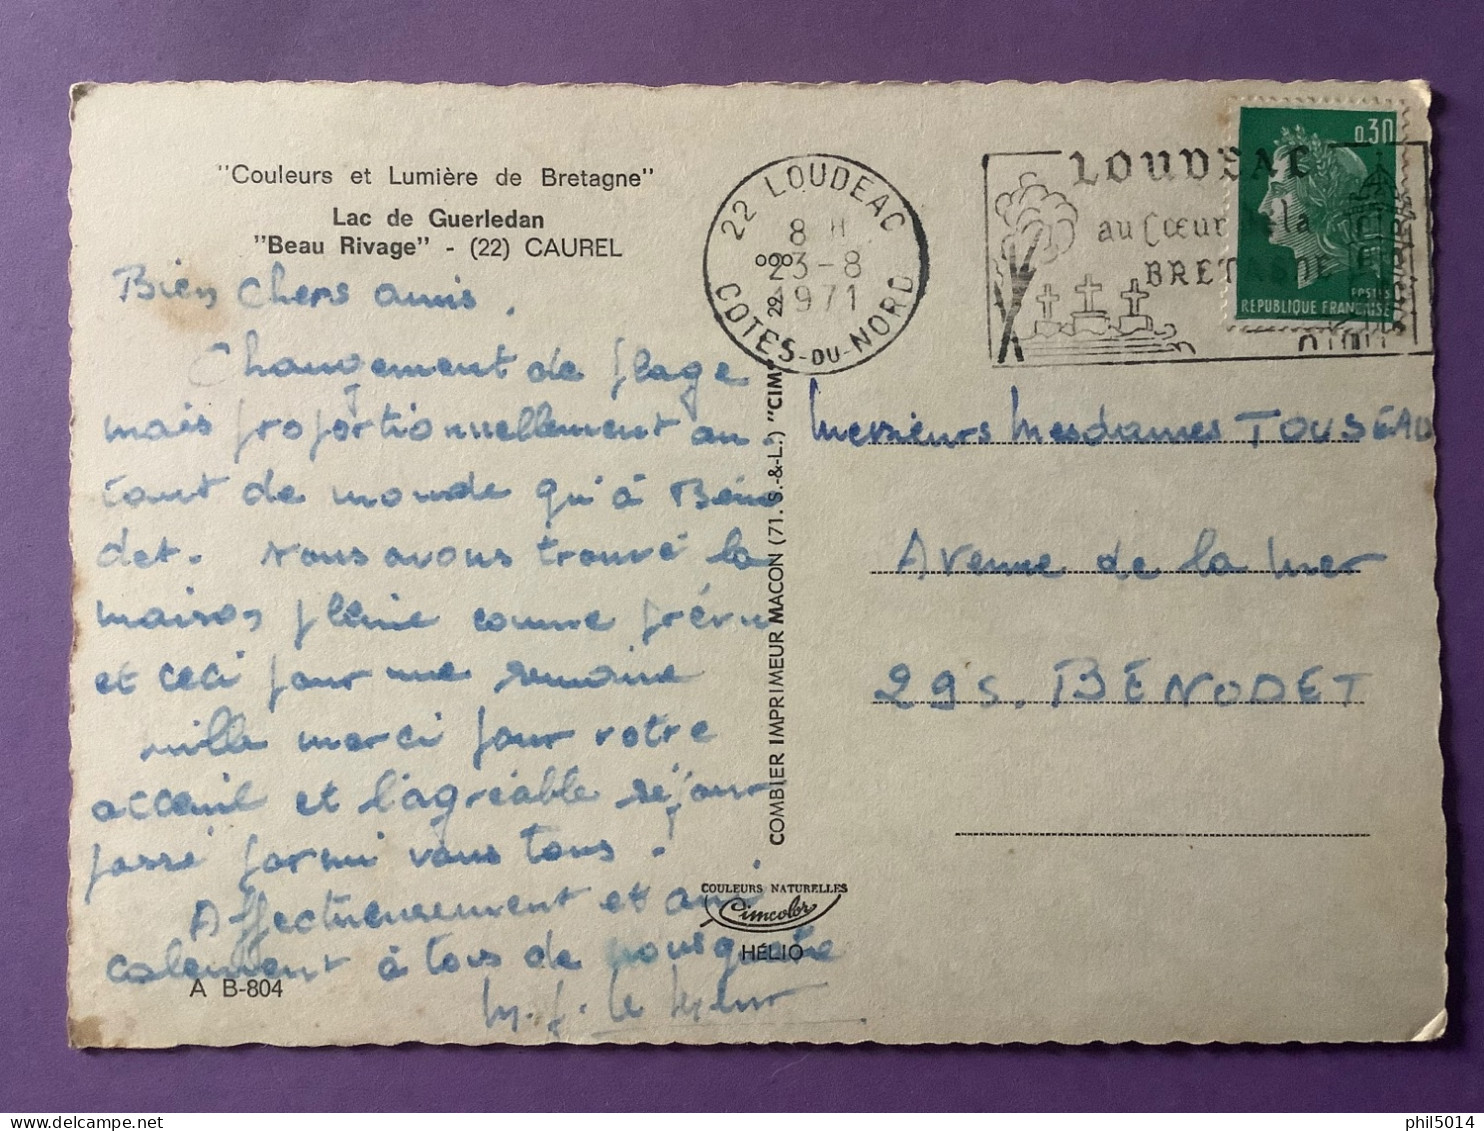 "Couleurs et Lumière de Bretagne"
Lac de Guerledan
"Beau Rivage" - (22) CAUREL
Bien chers amis,
Changement de plage
mais proportionnellement au-
tant de monde qu'à Béno
det. Nous avons trouvé la
maison pleine comme prévu
et ceci pour une semaine
mille merci pour votre
acceuil et l'agréable séjour
passé parmi vous tous!
Affectueusement et ami
calement à tous de nous quatre
A B-804
M. J. Le
COMBIER IMPRIMEUR MACON (71. S.-&-L.) "CIM"
COULEURS NATURELLES
Cimcolor
HÉLIO
22 LOUDEAC
8 H
23-8
1971
COTES-DU-NORD
LOUDEAC
au Cœur de la
BRETAGNE
0,30
REPUBLIQUE FRANÇAISE
Messieurs Mesdames TOUSEAU
Avenue de la Mer
29S. BENODET
phil5014